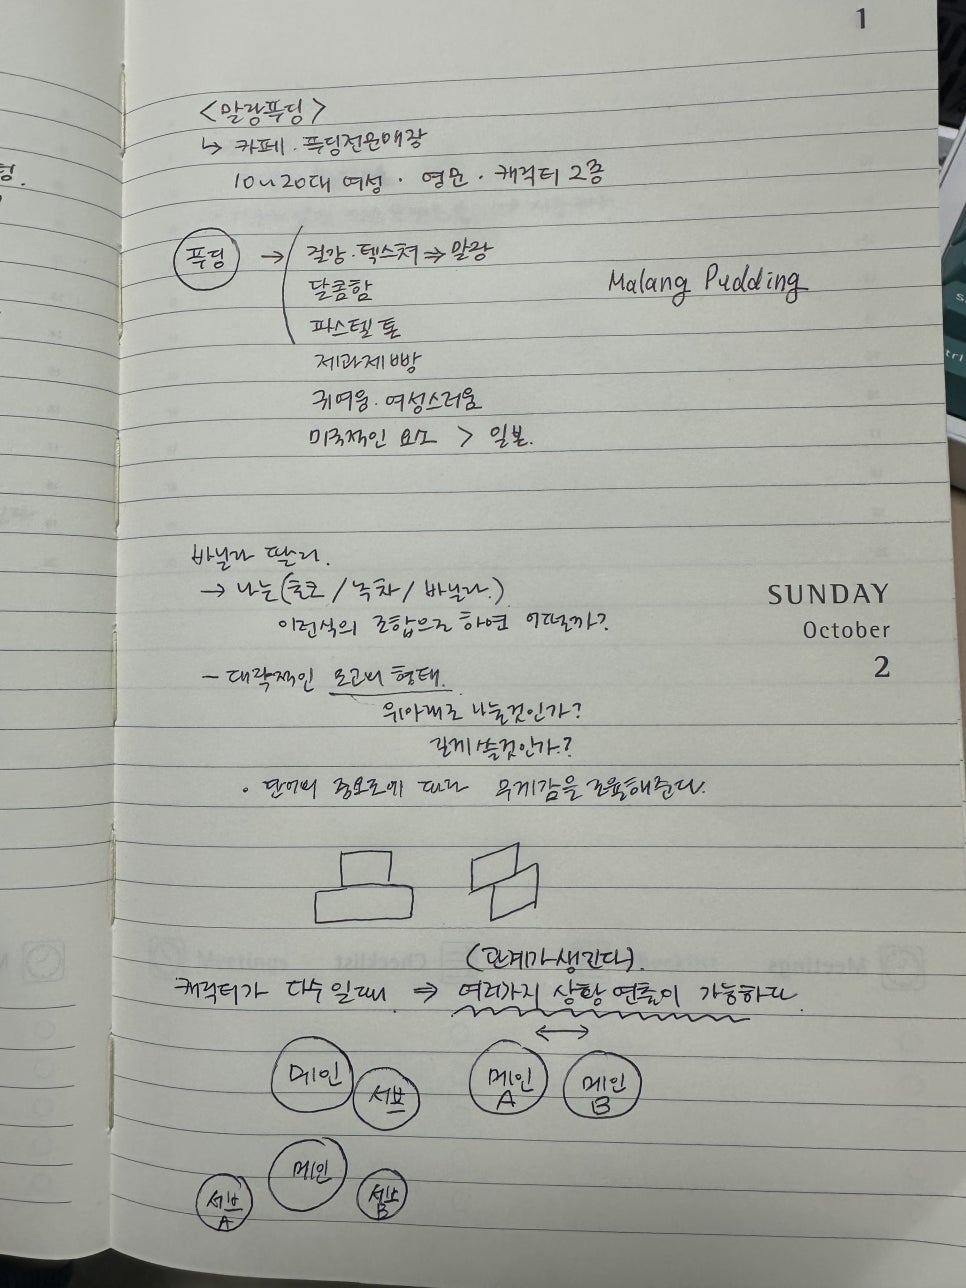 1
<말랑푸딩>
↳ 카페·푸딩전문매장
10~20대 여성 · 영문 · 캐릭터 2종
푸딩 → 질감·텍스처 ⇒ 말랑
달콤함
Malang Pudding
파스텔 톤
제과제빵
귀여움·여성스러움
미국적인 요소 > 일본.
바닐라 딸기.
→ 나는 (초코 / 녹차 / 바닐라.)
이런식의 조합으로 하면 어떨까?
SUNDAY
October
2
- 대략적인 로고의 형태.
위아래로 나눌것인가?
길게 쓸것인가?
· 단어의 중요도에 따라 무게감을 조율해준다.
(관계가 생긴다).
캐릭터가 다수일때 ⇒ 여러가지 상황 연출이 가능하다
메인
서브
메인 A
메인 B
메인
서브 A
서브 B
Meetings
Checklist